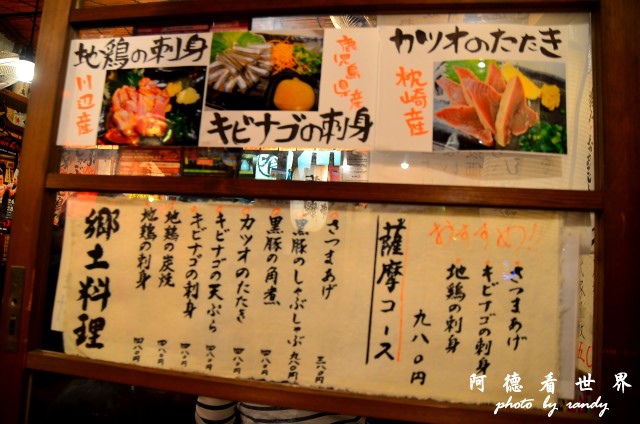 地鶏の刺身
川辺産
キビナゴの刺身
鹿児島県産
カツオのたたき
枕崎産
おすすめ!
さつまあげ
キビナゴの刺身
地鶏の刺身
薩摩コース
九八〇円
さつまあげ 三八〇円
黒豚のしゃぶしゃぶ 九八〇円
黒豚の角煮 四八〇円
カツオのたたき 四八〇円
キビナゴの天ぷら 四八〇円
キビナゴの刺身 四八〇円
地鶏の炭焼 四八〇円
地鶏の刺身 四八〇円
郷土料理
阿德看世界
photo by randy